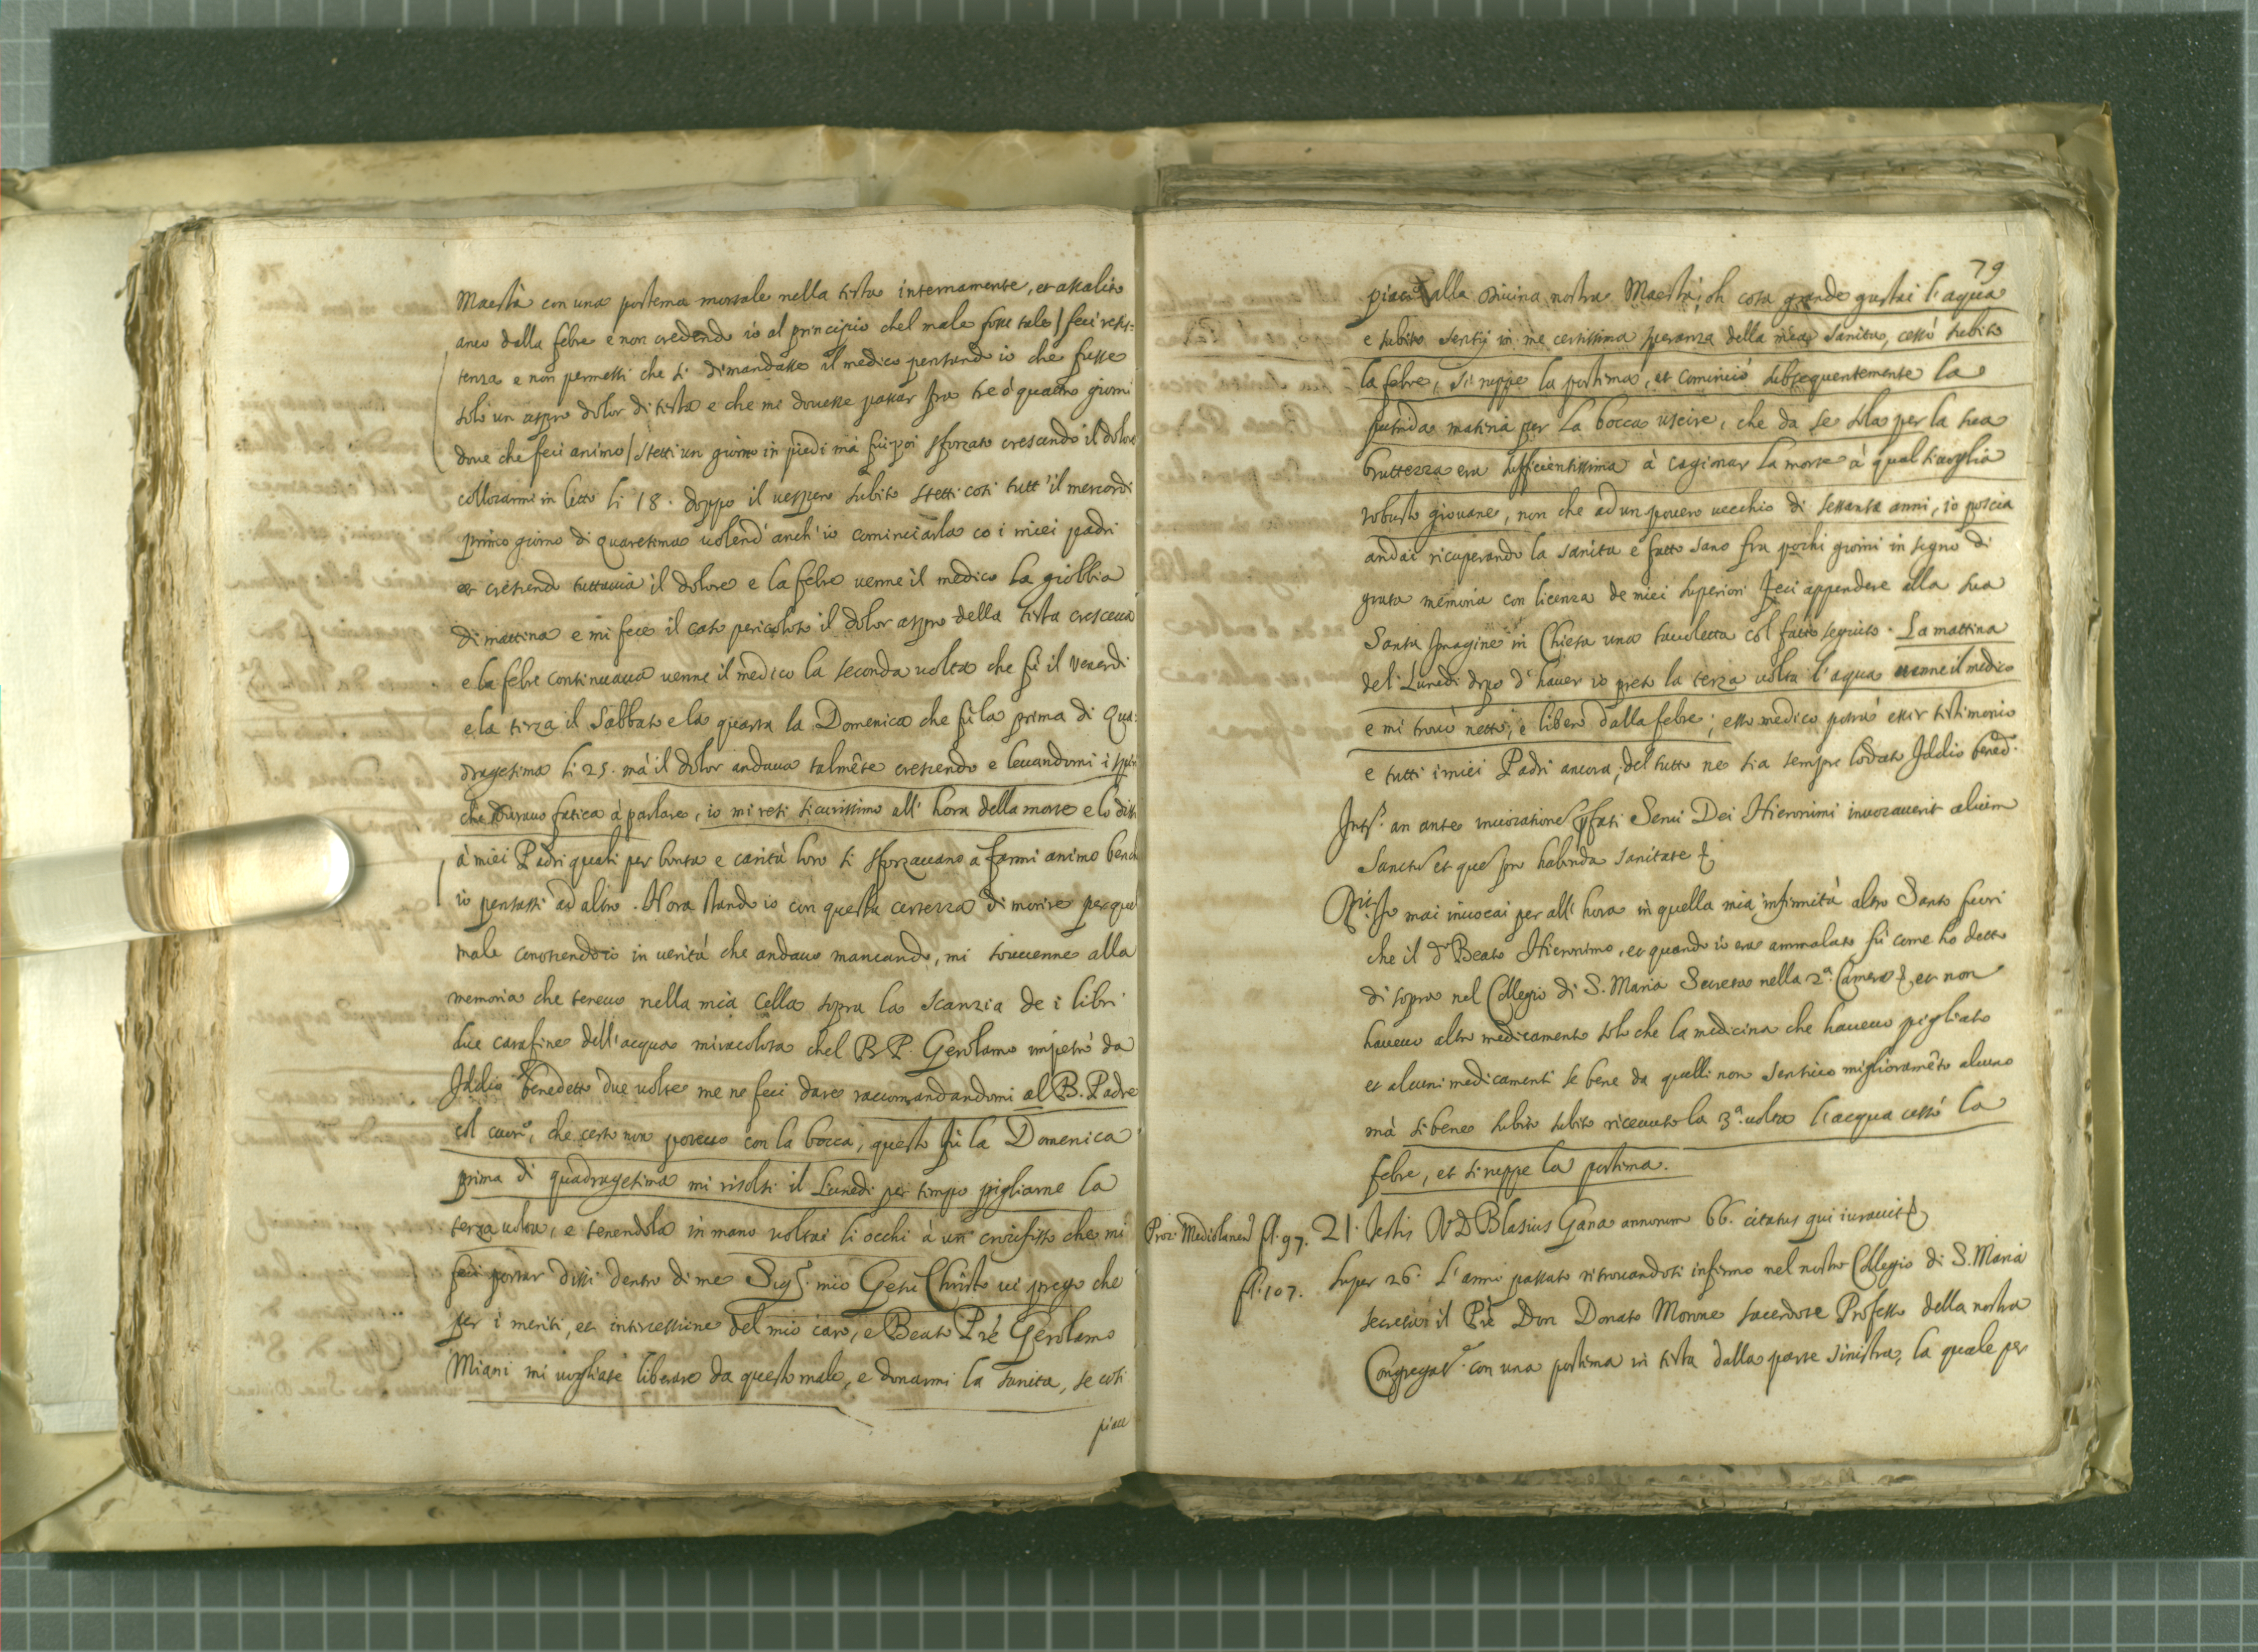 Maestà con una postema mortale nella testa internamente, et assalito
anco dalla febre e non credendo io al principio chel male fosse tale / feci resis-
tenza e non permessi che si dimandasse il medico pensando io che fusse
solo un aspro dolor di testa e che mi dovesse passar fra tre ó quattro giorni
dove che feci animo / stetti un giorno in piedi má fui poi sforzato crescendo il dolore
collocarmi in letto li 18. doppo il vespero subito stetti cosi tutt'il mercordi
primo giorno di quaresima volend'anch'io cominciarla co i miei padri
et crescendo tuttavia il dolore e la febre venne il medico la giobbia
di mattina e mi fece il caso pericoloso il dolor aspro della testa cresceva
e la febre continuava venne il medico la seconda volta che fú il Venerdi
e la terza il Sabbato e la quarta la Domenica che fú la prima di Qua-
dragesima li 25. má il dolor andava talmẽte crescendo e levandomi i spiri
che duravo fatica à parlare, io mi resi sicurissimo all'hora della morte e lo dissi
à miei Padri quali per bontà e carità loro si sforzavano a farmi animo bench
io pensassi ad altro. Hora stando io con questa certezza di morire per quel
male conoscendo io in verità che andavo mancando, mi sovvenne alla
memoria che tenevo nella mia Cella sopra la scanzia de i libri
due carafine dell'acqua miracolosa chel B.P. Gerolamo impetrò da
Iddio benedetto due volte me ne feci dare raccomandandomi al B. Padre
col cuore, che certo non potevo con la bocca, questo fù la Domenica
prima di quadragesima mi risolsi il Lunedi per tempo pigliarne la
terza volta, e tenendola in mano voltai li occhi à un crocifisso che mi
feci portar dissi dentro di me Sigr. mio Gesu Christo vi prego che
per i meriti, et intercessione del mio caro, e Beato Pré Gerolamo
Miani mi vogliate liberare da questo male, e donarmi la sanita, se cosi
piace
79
piace alla Divina nostra Maestá; oh cosa grande gustai l'aqua
e subito sentij in me certissima speranza della mea sanita, cessó subito
la febre, si ruppe la postima, et cominció subsequentemente la
putrida matiria per la bocca uscire, che da se sola per la sua
bruttezza era sufficientissima à cagionar la morte à qual sivoglia
robusto giovane, non che ad un povero vecchio di sessanta anni, io poscia
andai ricuperando la sanita e fatto sano fra pochi giorni in segno di
grata memoria con licenza de miei superiori feci appendere alla sua
Santa Imagine in Chiesa una tavoletta col fatto seguito. La mattina
del Lunedi dopo d'haver io preso la terza volta l'aqua venne il medico
e mi trovò netto, e libero dalla febre; esso medico potrá esser testimonio
e tutti i miei Padri ancora, del tutto ne sia sempre lodato Iddio bened.º
Intʳ. an ante invocationẽ pfati Servi Dei Hieronimi invocaverit alium
Sanctũ et que pro habenda sanitate &
Rʳ. Io mai invocai per all'hora in quella mia infirmità altro Santo fuori
che il dº Beato Hieronimo, et quando io ero ammalato fú come ho detto
di sopra nel Collegio di S. Maria Secreta nella 2ª. Camera &, et non
havevo altro medicamento solo che la medicina che havevo pigliato
et alcuni medicamenti se bene da quelli non sentivo miglioramẽto alcuno
mà sibene subito subito ricevuto la 3ª. volta l'acqua cessó la
febre, et si ruppe la postima.
Proc. Mediolanen. fl. 97. 21. Testis R D Blasius Gana annorum 66. citatus qui iuravit &
fl. 107. Super 26. L'anno passato ritrovandosi infirmo nel nostro Collegio di S. Maria
secreta il Pré Don Donato Morone sacerdote Professo della nostra
Congregatᵉ. con una postima in testa dalla parte sinistra, la quale per